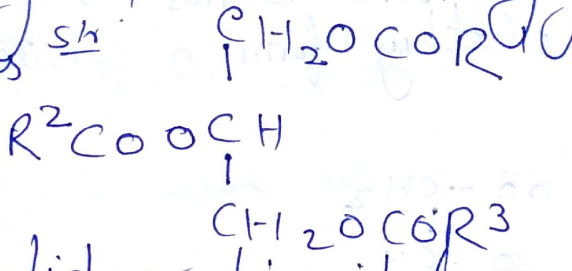 str CH₂OCOR
R²COOCH
CH₂OCOR³